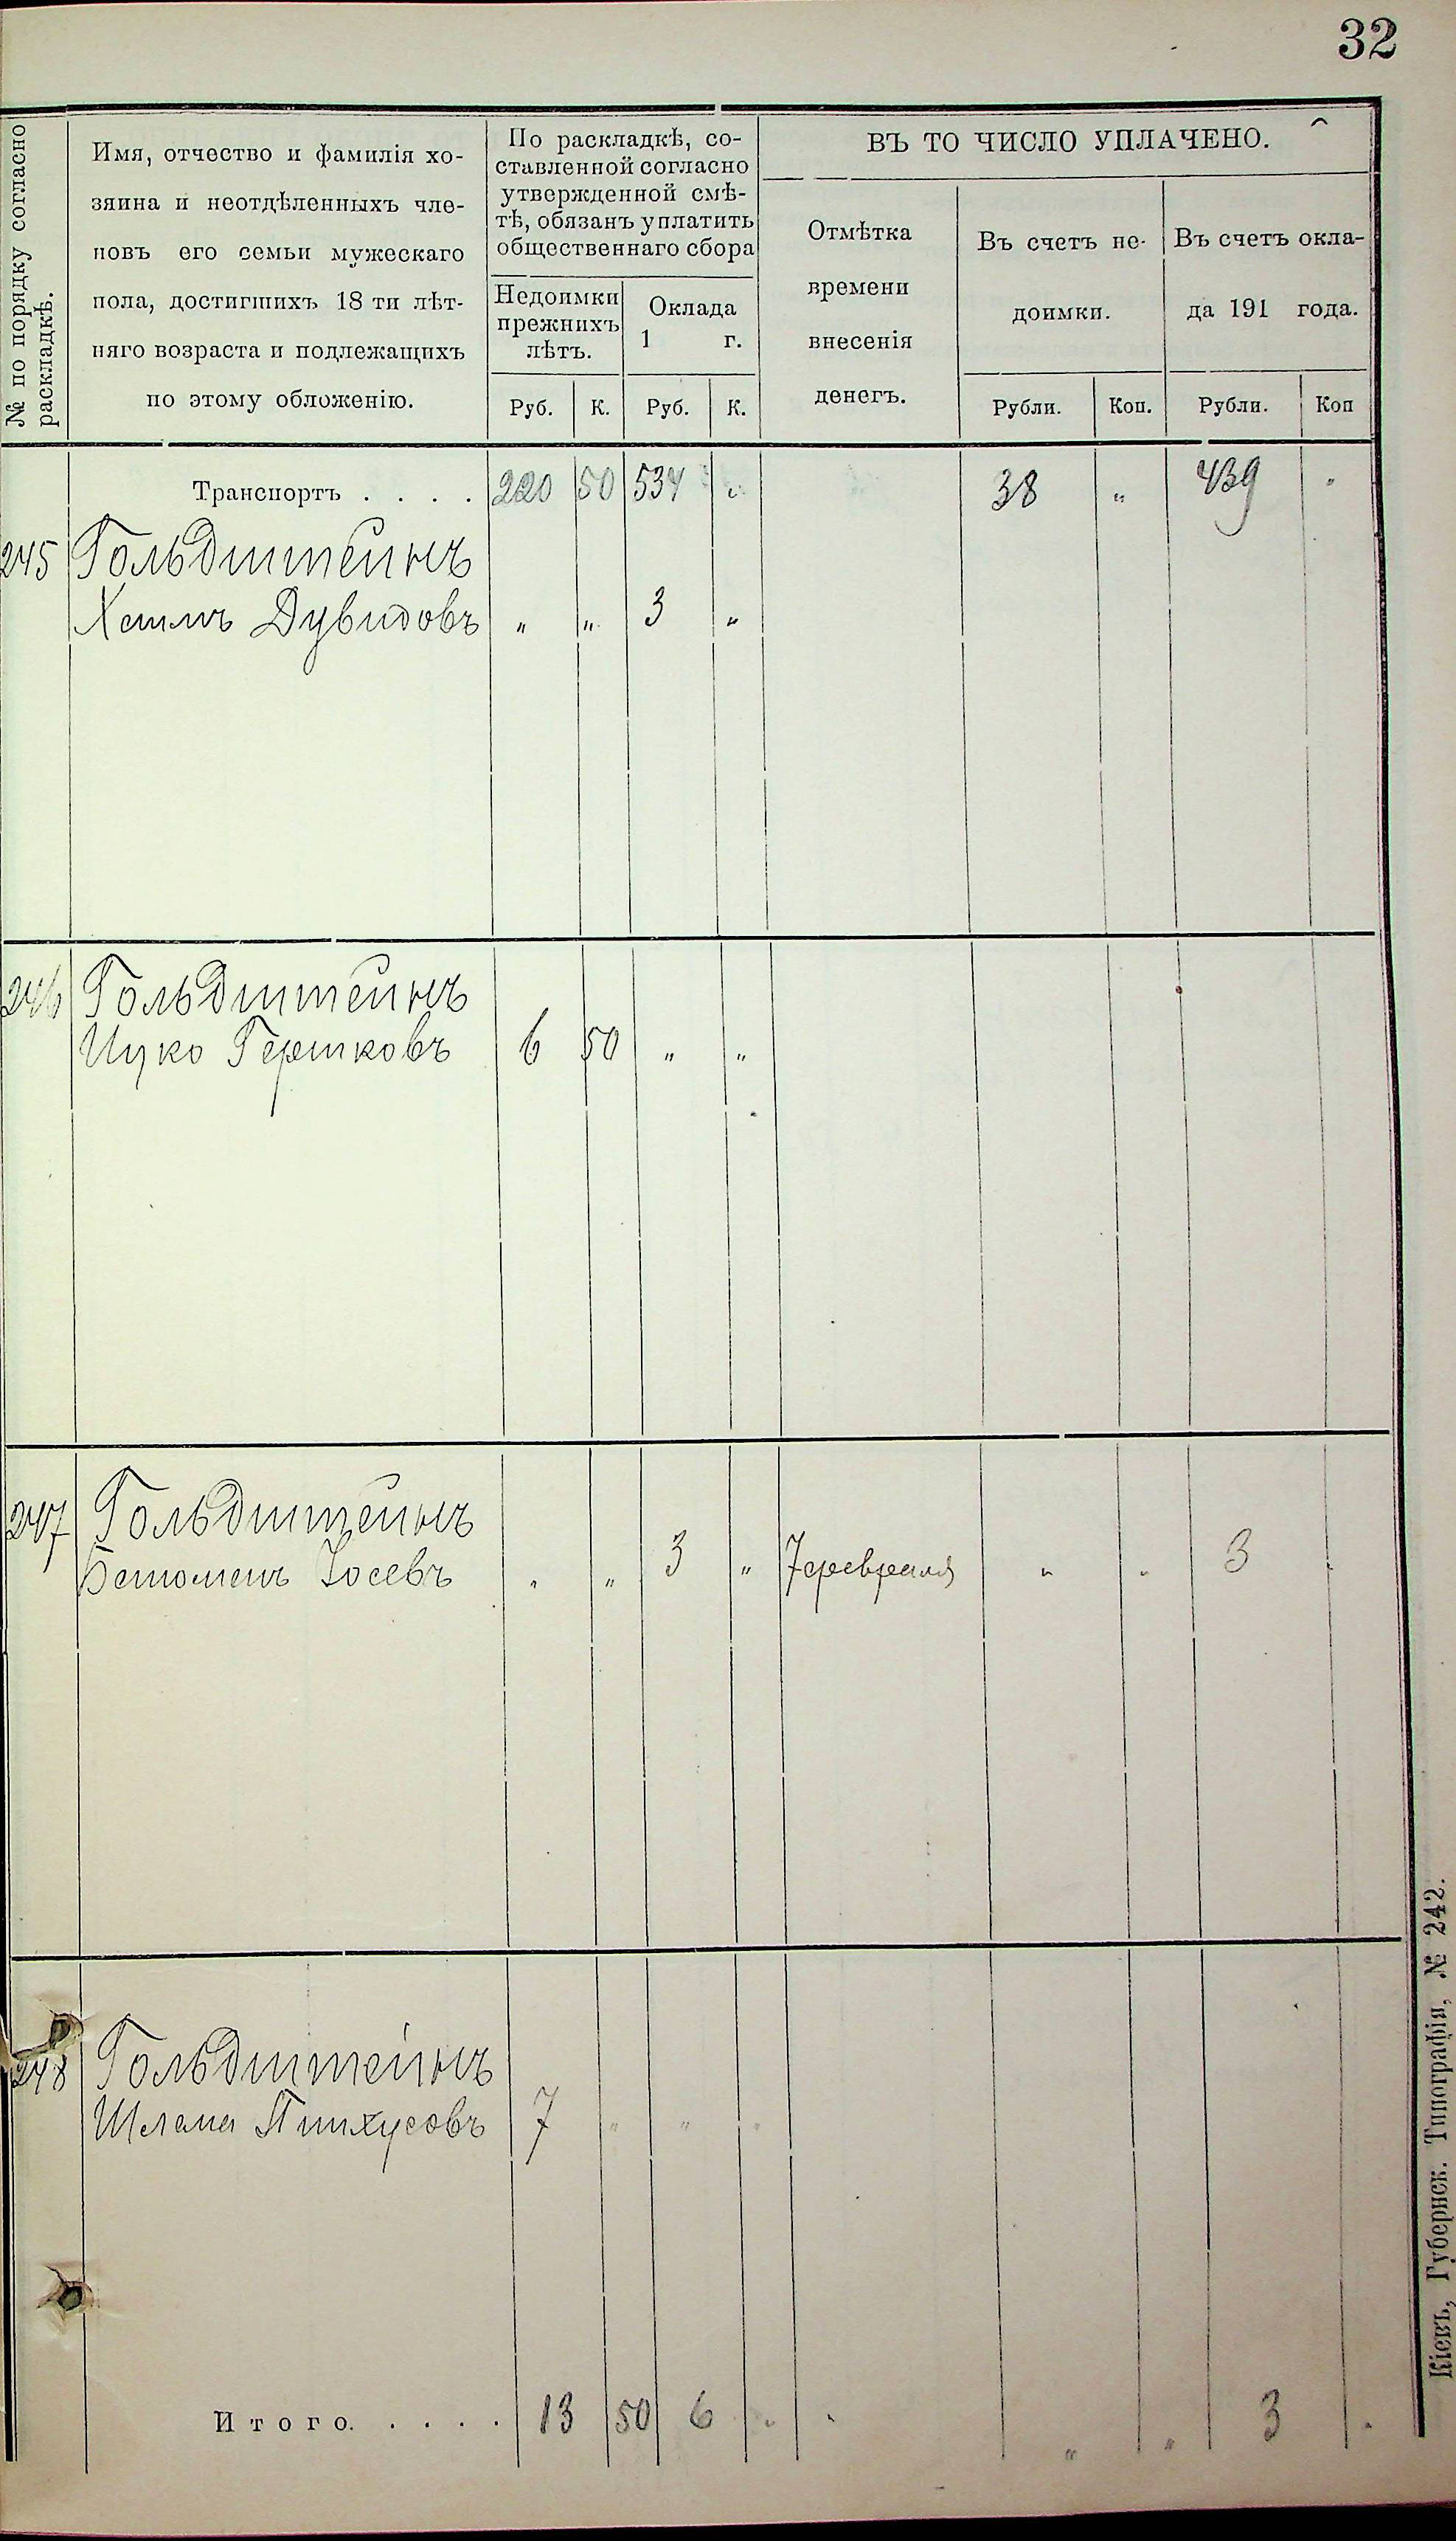 32
№ по порядку согласно
раскладкѣ.
Имя, отчество и фамилія хо-
зяина и неотдѣленныхъ чле-
новъ его семьи мужескаго
пола, достигшихъ 18 ти лѣт-
няго возраста и подлежащихъ
по этому обложенію.
По раскладкѣ, со-
ставленной согласно
утвержденной смѣ-
тѣ, обязанъ уплатить
общественнаго сбора
Недоимки
прежнихъ
лѣтъ.
Оклада
1 г.
Руб. К. Руб. К.
ВЪ ТО ЧИСЛО УПЛАЧЕНО.
Отмѣтка
времени
внесенія
денегъ.
Въ счетъ не-
доимки.
Въ счетъ окла-
да 191 года.
Рубли. Коп. Рубли. Коп
Транспортъ . . . . 220 50 534 „ 38 „ 439 „
245 Гольдштейнъ
Хаимъ Дувидовъ „ „ 3 „
246 Гольдштейнъ
Ицко Гершковъ 6 50 „ „
247 Гольдштейнъ
Іосевъ „ „ 3 „ 7 февраля „ „ 3 „
248 Гольдштейнъ
Шлема Пинхусовъ 7 „ „ „
Итого. . . . . 13 50 6 „ „ „ 3 „
Кіевъ, Губернск. Типографія, № 242.